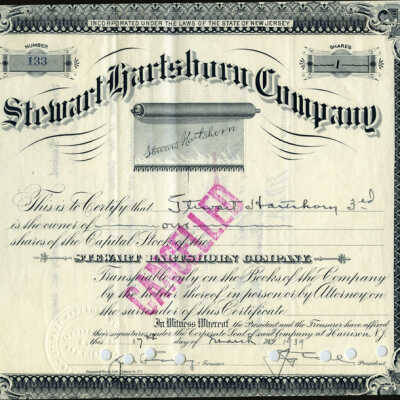 INCORPORATED UNDER THE LAWS OF THE STATE OF NEW JERSEY
NUMBER
133
SHARES
1
Stewart Hartshorn Company
Stewart Hartshorn
This is to Certify that Stewart Hartshorn 3rd
is the owner of one
shares of the Capital Stock of the
STEWART HARTSHORN COMPANY.
Transferable only on the Books of the Company
by the holder thereof in person or by Attorney on
the surrender of this Certificate.
CANCELLED
In Witness Whereof the President and the Treasurer have affixed
their signatures under the Corporate Seal of said Company at Harrison, N.J.
this 17th day of March 1939
Treasurer
President